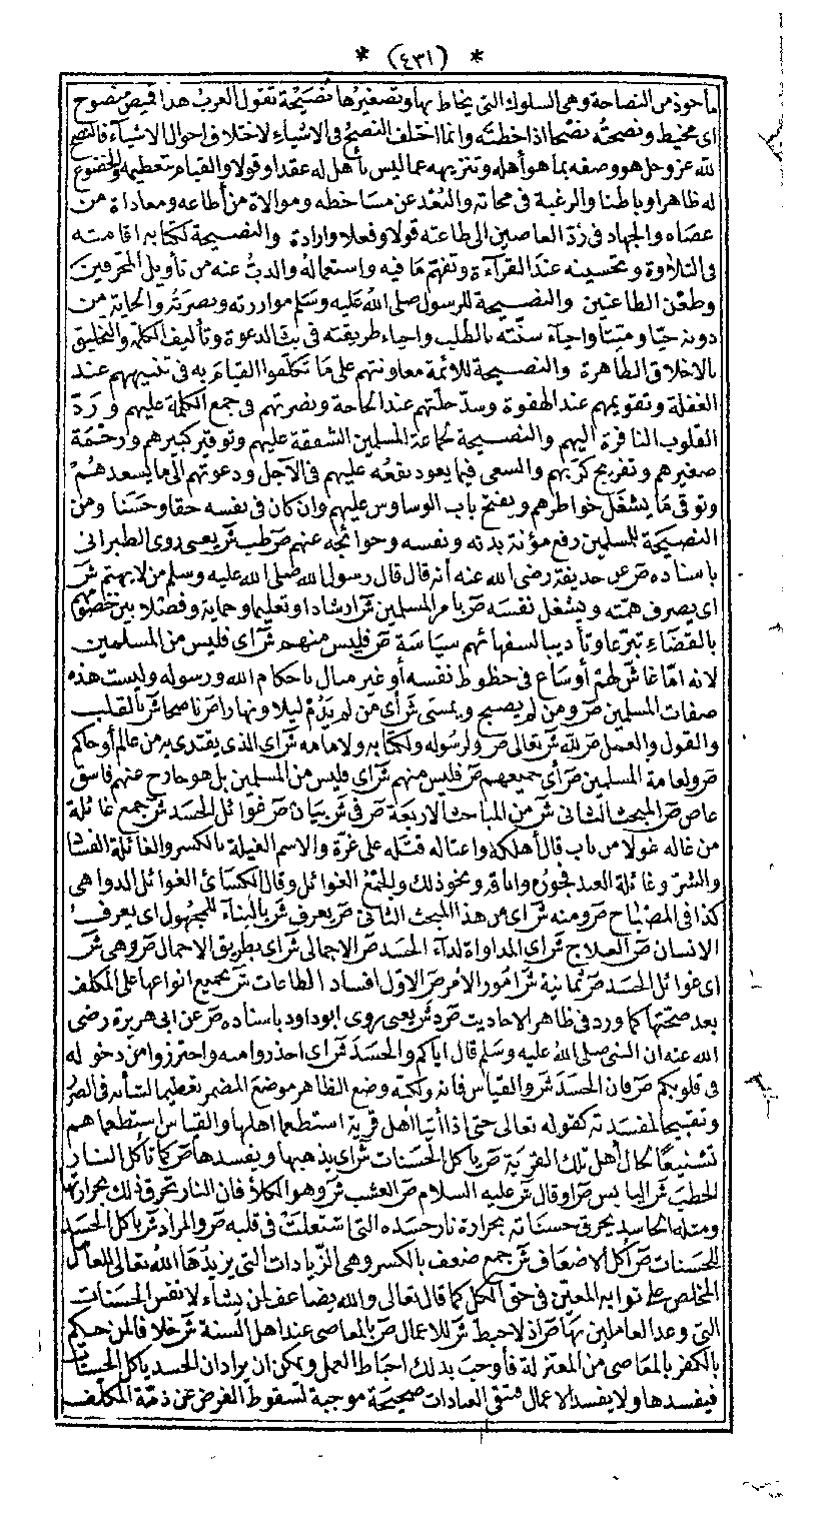 * (٤٣١) *
مأخوذ من النصاحة وهى السلوك التى يخاط بها وتصغيرها نصيحة تقول العرب هذا قميص منصوح
اى مخيط ونصحته نصحا اذا خطته وانما اختلف النصح فى الاشياء لاختلاف احوال الاشياء فالنصح
لله عز وجل هو وصفه بما هو أهله وتنزيهه عما ليس بأهل له عقدا وقولا والقيام بتعظيمه والخضوع
له ظاهرا وباطنا والرغبة فى محابه والبعد عن مساخطه وموالاة من أطاعه ومعاداة من
عصاه والجهاد فى رد العاصين الى طاعته قولا وفعلا وارادة والنصيحة لكتابه اقامته
فى التلاوة وتحسينه عند القرآءة وتفهم ما فيه واستعماله والذب عنه من تأويل المحرفين
وطعن الطاعنين والنصيحة للرسول صلى الله عليه وسلم موازرته ونصرته والحماية من
دونه حيا وميتا واحيآء سنته بالطلب واحياء طريقته فى بث الدعوة وتأليف الكلمة والتخلق
بالاخلاق الطاهرة والنصيحة للائمة معاونتهم على ما تكلفوا القيام به فى تنبيههم عند
الغفلة وتقويمهم عند الهفوة وسد خلتهم عند الحاجة ونصرتهم فى جمع الكلمة عليهم ورد
القلوب النافرة اليهم والنصيحة لجماعة المسلمين الشفقة عليهم وتوقير كبيرهم ورحمة
صغيرهم وتفريج كربهم والسعى فيما يعود نفعه عليهم فى الآجل ودعوتهم الى ما يسعدهم
وتوقى ما يشغل خواطرهم ويفتح باب الوساوس عليهم وان كان فى نفسه حقا وحسنا ومن
النصيحة للمسلمين رفع مؤنة بدنه ونفسه وحوائجه عنهم ص طب ش يعنى روى الطبرانى
باسناده ص عن حذيفة رضى الله عنه أنه قال قال رسول الله صلى الله عليه وسلم من لا يهتم ش
اى يصرف همته ويشغل نفسه ص بامر المسلمين ش ارشادا وتعليما وحماية وفصلا بين خصمهم
بالقضاء تبرعا وتأديبا لسفهائهم سياسة ص فليس منهم ش اى فليس من المسلمين
لانه اما غاش لهم أو ساع فى حظوظ نفسه أو غير مبال باحكام الله ورسوله وليست هذه
صفات المسلمين ص ومن لم يصبح ويمسى ش أى من لم يدم ليلا ونهارا ص ناصحا ش بالقلب
والقول والعمل ص لله ش تعالى ص ولرسوله ولكتابه ولامامه ش اى الذى يقتدى به من عالم أو حاكم
ص ولعامة المسلمين ص أى جميعهم ص فليس منهم ش اى فليس من المسلمين بل هو خارج عنهم فاسق
عاص ص المبحث الثانى ش من المباحث الاربعة ص فى ش بيان ص غوائل الحسد ش جمع غائلة
من غاله غولا من باب قال أهلكه واغتاله قتله على غرة والاسم الغيلة بالكسر والغائلة الفساد
والشر وغائلة العبد فجوره واباقه ونحو ذلك والجمع الغوائل وقال الكسائى الغوائل الدواهى
كذا فى المصباح ص ومنه ش اى من هذا المبحث الثانى ص يعرف ش بالبنآء للمجهول اى يعرف
الانسان ص العلاج ش اى المداواة لدآء الحسد ص الاجمالى ش اى بطريق الاجمال ص وهى ش
اى غوائل الحسد ص ثمانية ش امور الامر ص الاول افساد الطاعات ش بجميع انواعها على المكلف
بعد صحتها كما ورد فى ظاهر الاحاديث ص د ش يعنى روى ابو داود باسناده ص عن ابى هريرة رضى
الله عنه ان النبى صلى الله عليه وسلم قال اياكم والحسد ش اى احذروا منه واحترزوا من دخوله
فى قلوبكم ص فان الحسد ش والقياس فانه ولكنه وضع الظاهر موضع المضمر تعظيما لشأنه فى الضر
وتقبيحا لمفسدته كقوله تعالى حتى اذا أتيا أهل قرية استطعما اهلها والقياس استطعماهم
تشنيعا لحال أهل تلك القرية ص يأكل الحسنات ش اى يذهبها ويفسدها ص كما تأكل النار
الحطب ش اليابس ص او قال ش عليه السلام ص العشب ش وهو الكلأ فان النار تحرق ذلك بحرارتها
ومثله الحاسد يحرق حسناته بحرارة نار حسده التى اشتعلت فى قلبه ص والمراد ش باكل الحسد
للحسنات ص أكل الاضعاف ش جمع ضعف بالكسر وهى الزيادات التى يزيدها الله تعالى للعامل
المخلص على ثوابه المعين فى حق الكل كما قال تعالى والله يضاعف لمن يشاء لا نفس الحسنات
التى وعد العاملين بها ص اذ لا حبط ش للاعمال ص بالمعاصى عند اهل السنة ش خلافا لمن حكم
بالكفر بالمعاصى من المعتزلة فأوجب بذلك احباط العمل ويمكن ان يراد ان الحسد يأكل الحسنات
فيفسدها ولا يفسد الاعمال فتبقى العبادات صحيحة موجبة لسقوط الفرض عن ذمة المكلف